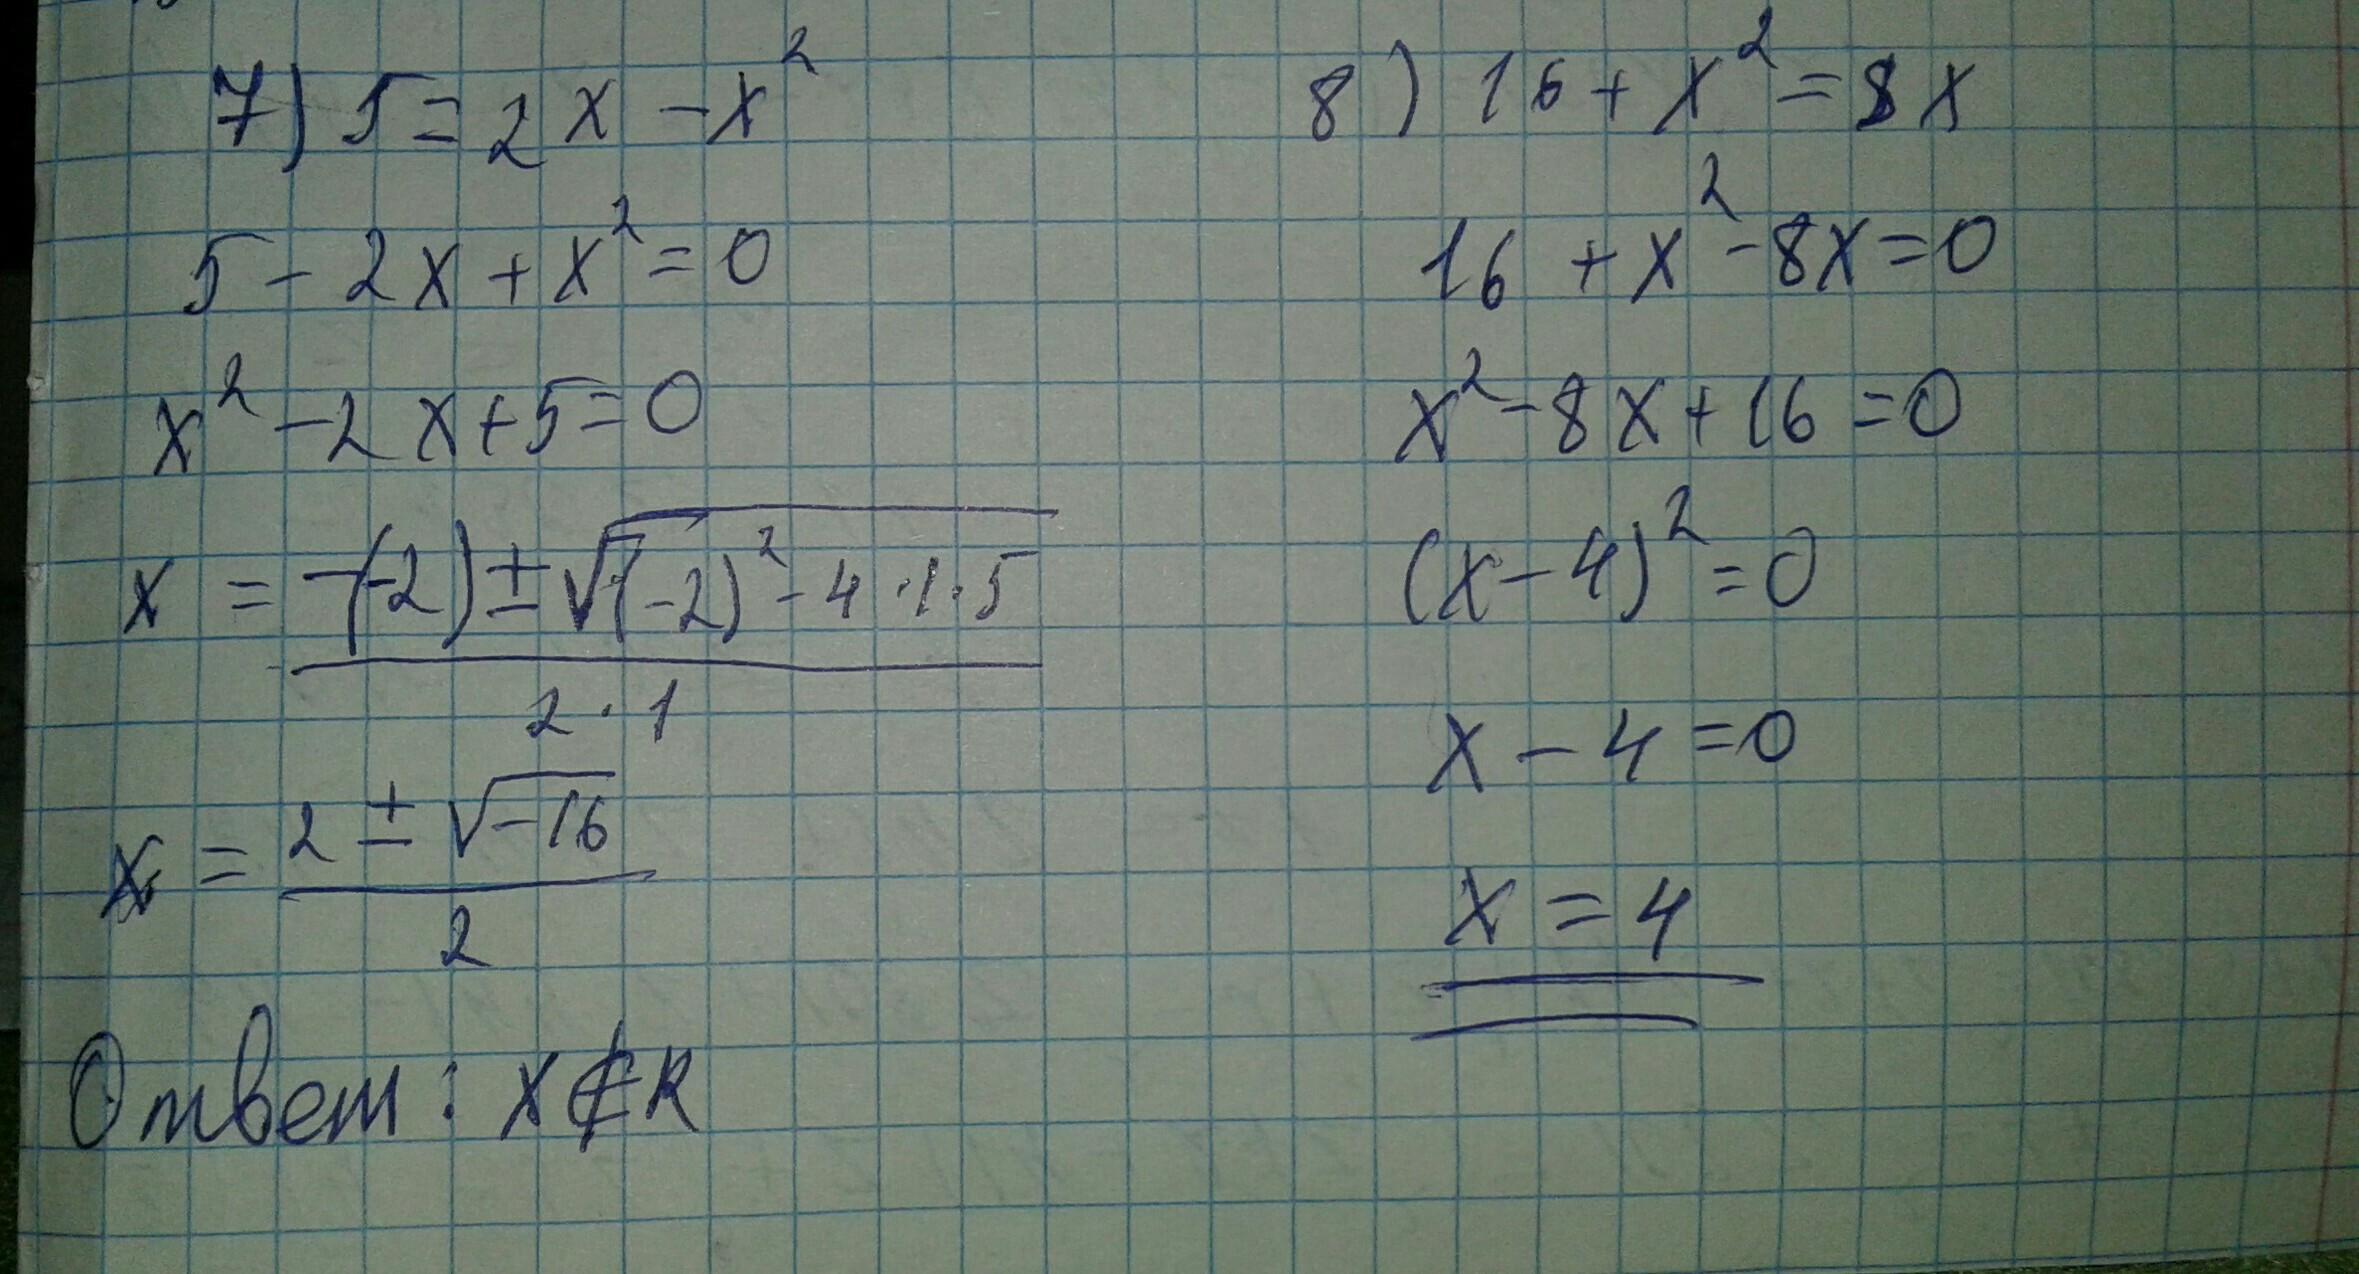 7) 5 = 2x - x²
5 - 2x + x² = 0
x² - 2x + 5 = 0
x = -(-2) ± √(-2)² - 4 · 1 · 5
2 · 1
x = 2 ± √-16
2
Ответ: x ∉ R
8) 16 + x² = 8x
16 + x² - 8x = 0
x² - 8x + 16 = 0
(x - 4)² = 0
x - 4 = 0
x = 4